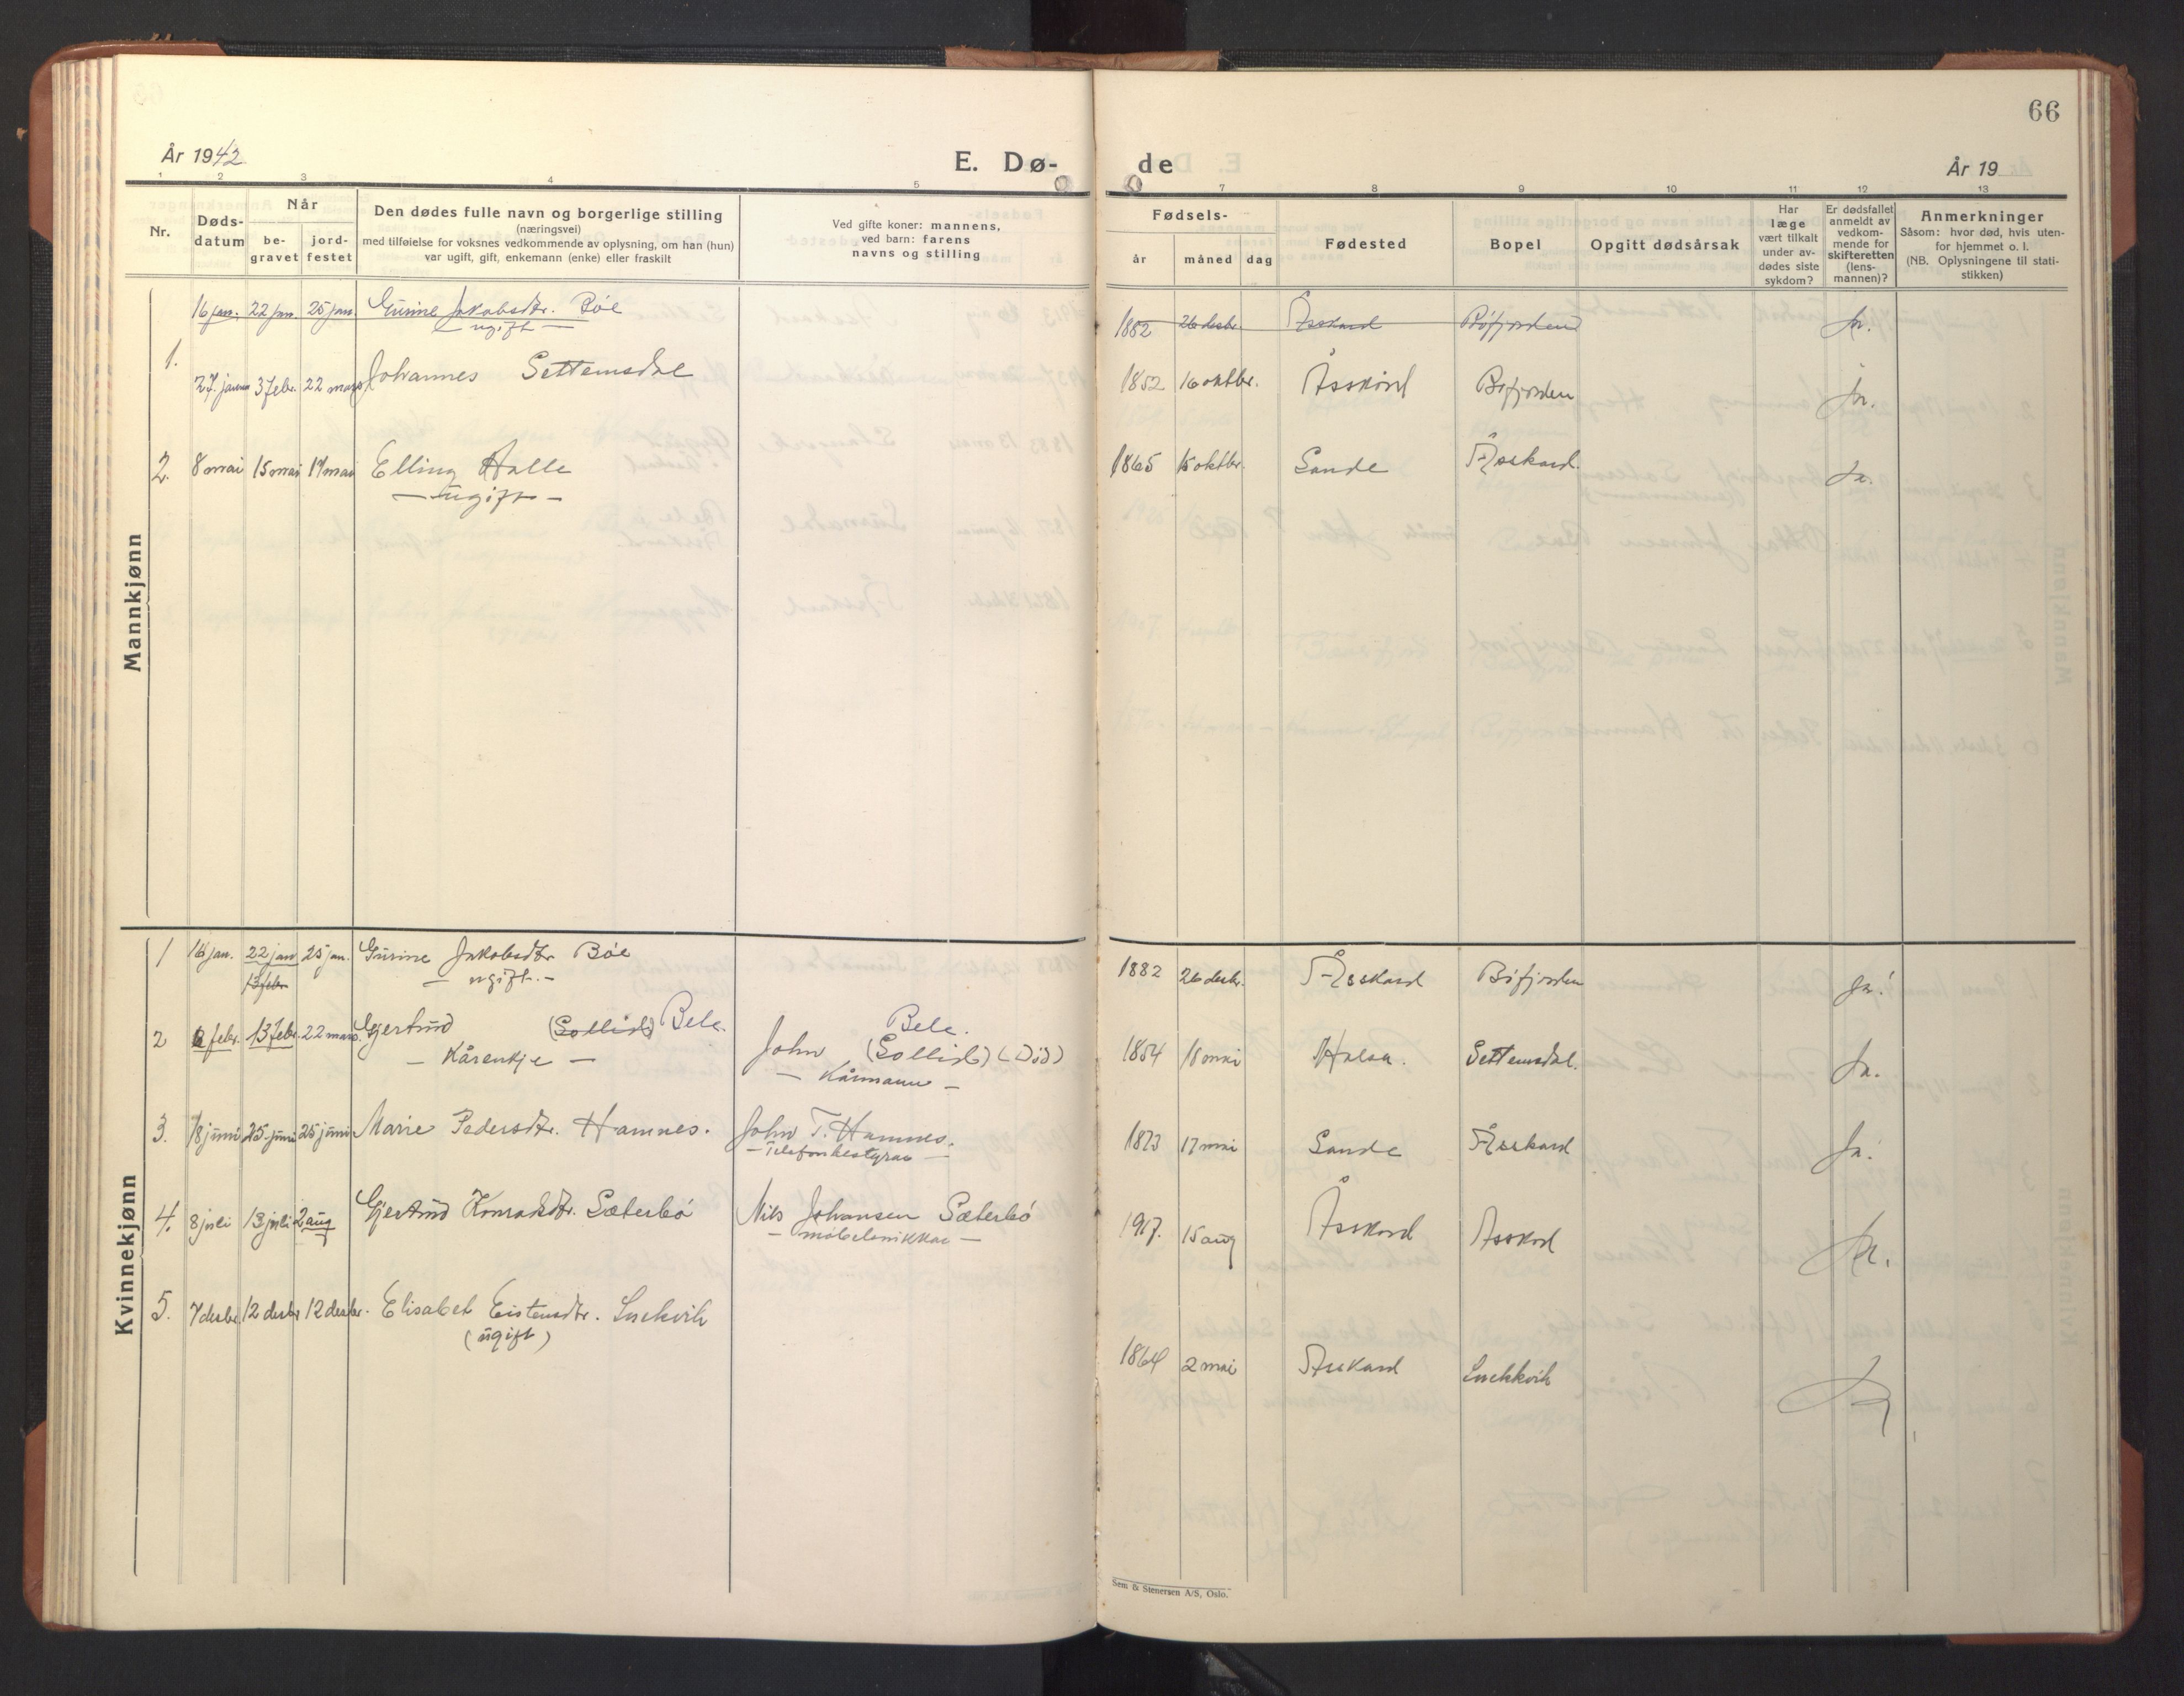 66
År 1942
E. Dø-
de
År 19
1 2 3 4 5
7 8 9 10 11 12 13
Nr.
Døds-
datum
Når
be-
gravet
jord-
festet
Den dødes fulle navn og borgerlige stilling
(næringsvei)
med tilføielse for voksnes vedkommende av oplysning, om han (hun)
var ugift, gift, enkemann (enke) eller fraskilt
Ved gifte koner: mannens,
ved barn: farens
navns og stilling
Fødsels-
år måned dag
Fødested
Bopel
Opgitt dødsårsak
Har
læge
vært tilkalt
under av-
dødes siste
sykdom?
Er dødsfallet
anmeldt av
vedkom-
mende for
skifteretten
(lens-
mannen)?
Anmerkninger
Såsom: hvor død, hvis uten-
for hjemmet o. l.
(NB. Oplysningene til stati-
stikken)
Mannkjønn
16 jan. 22 jan. 25 jan. Gurine Jakobsdtr. Böe
- ugift -
1882 26 desbr. Åsskard Böfjorden Ja.
1. 27. januar 3 febr. 22 mars Johannes Settemsdal
1852 16 oktbr. Åsskard Böfjorden Ja.
2. 8 mai 15 mai 17 mai Elling Halle
- ugift -
1865 15 oktbr. Sande Åsskard. Ja.
Kvinnekjønn
1 16 jan. 22 jan 25 jan. Gurine Jakobsdtr Böe
13 febr - ugift. -
1882 26 desbr. Åsskard Böfjorden ja!
2 6 febr. 13 febr. 22 mars. Gjertrud (Sollid) Bele.
- Kårenkje -
Bele.
John (Sollid) (död)
- Kårmann -
1854 18 mai Halsa. Settemsdal. Ja.
3. 18 juni 25. juni 25 juni Marie Pedersdtr. Hamnes.
John T. Hamnes.
- Telefonbestyrar -
1873 17 mai Sande Åsskard Ja.
4. 8 juli 13 juli 2 aug Gjertrud Konradsdtr. Sæterbö
Nils Johansen Sæterbö
- möbelsnikkar -
1917. 15 aug Åsskard Asskard Ja.
5. 7 desbr. 12 desbr 12 desbr. Elisabet Eistensdtr. Snekvik
(ugift)
1864 2 mai Åsskard Snekkvik Ja
Sem & Stenersen A/S, Oslo.